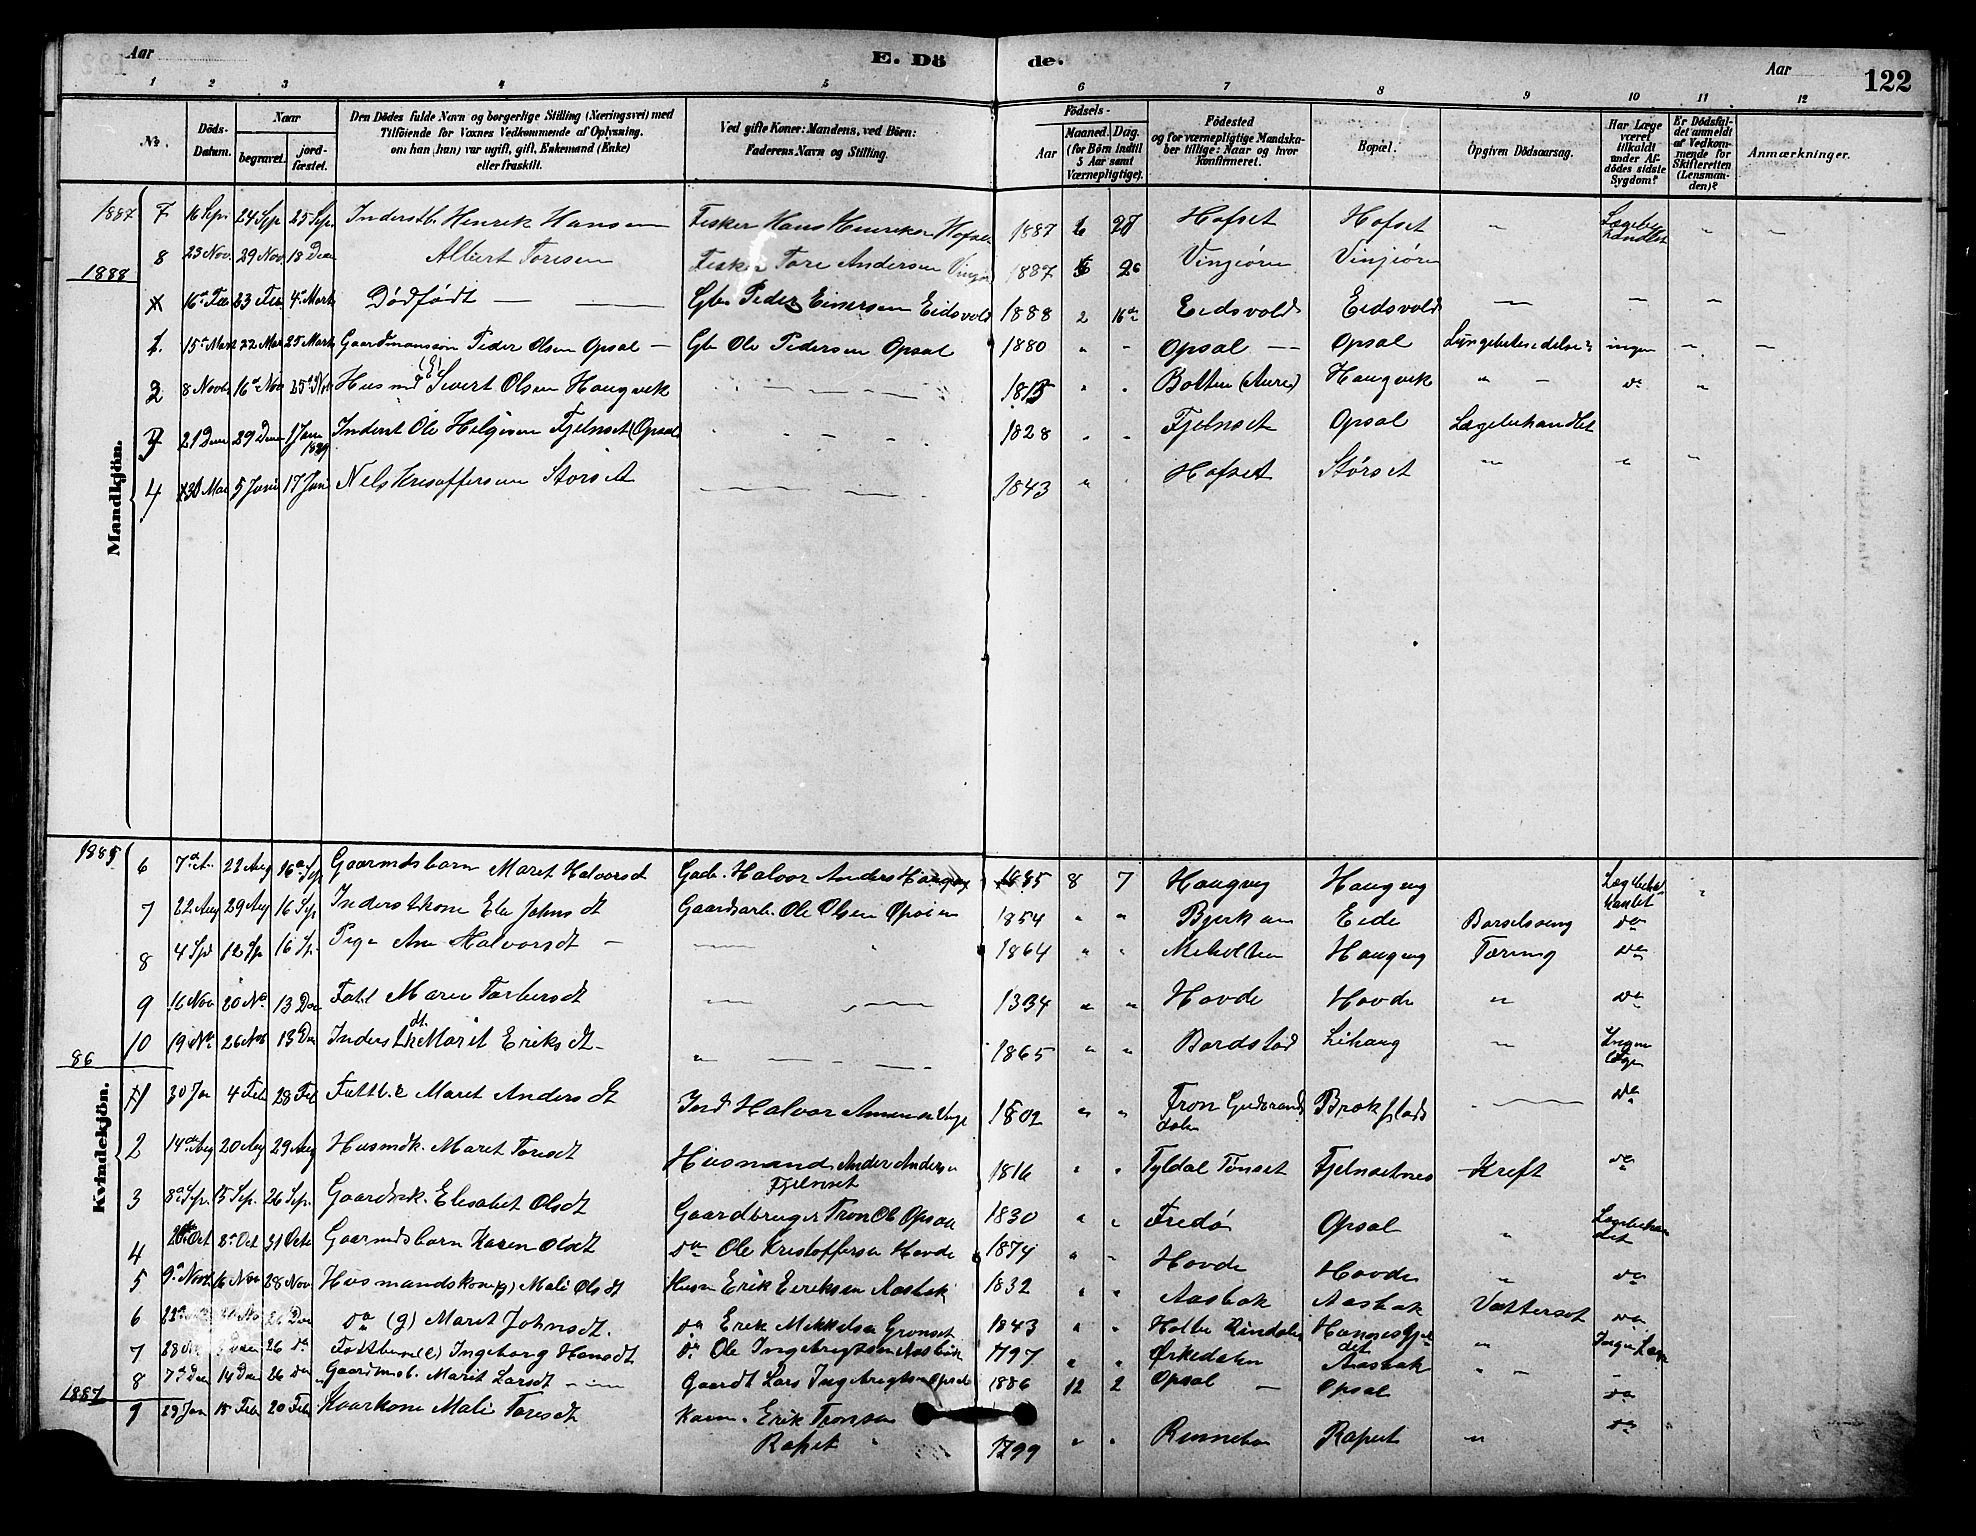 Aar E. Dö de. Aar 122
1 2 3 4 5 6 7 8 9 10 11 12
No.
Döds-
Datum.
Naar
begravet.
jord-
fæstet.
Den Dödes fulde Navn og borgerlige Stilling (Næringsvei) med
Tilföiende for Voxnes Vedkommende af Oplysning.
om han (hun) var ugift, gift, Enkemand (Enke)
eller fraskilt.
Ved gifte Koner: Mandens, ved Börn:
Faderens Navn og Stilling.
Födsels-
Aar
Maaned. Dag.
(for Börn indtil
5 Aar samt
Værnepligtige).
Födested
og for værnepligtige Mandska-
ber tillige: Naar og hvor
konfirmeret.
Bopæl.
Opgiven Dödsaarsag.
Har Læge
været
tilkaldt
under Af-
dödes sidste
Sygdom?
Er Dödsfal-
det anmeldt
af Vedkom-
mende for
Skifteretten
(Lensman-
den)?
Anmærkninger.
Mandkjön.
1887 7 16 Sep 24 Sep 25 Sep Henrik Hansen Fisker Hans Henriksen Hofset 1887 Hofset Hofset " Lægebe handlet " "
8 23 Nov 29 Nov 18 Dec Albert Toresen Fisker Tore Andersen 1887 26 Vinjeören Vinjeören
1888
16de Feb 23 Feb 4de Marts Dødfødt — — Gbr Peder Einersen Eidsvold 1888 2 16de Eidsvold Eidsvold — — —
1. 15de Mar 22 Mar 25 Marts Gaardmansön Peder Olsen Opsal — Gbr Ole Pedersen Opsal 1880 " " Opsal — Opsal ingen — —
2 8 Novb 16de Nov 25de Nov Husmd (E) Sivert Olsen Haugvik — — — — Botten (Aure) Haugvik " — do "
21 Dec 29 Dec 1 Jan 1889 Inderst Ole Helgesen Fjelnset (Opsal) " — — — 1828 " " Fjelnset Opsal Lægebehandlet
4 30 Mai 5 Juni 17 Juni Nels Kresoffersen Storset — — — 1843 " " Hofset Störset " " "
Kvindekjön.
1885 6 7de A. 22 Aug 16de Sep Gaarmdsbarn Maret Halvorsdt Gadb. Halvor Anders Haugvg 1885 8 7 Haugvg Haugvg Lægbehandlet "
7 22 Aug 29 Aug 16 Sep Inderstkone Eli Johnsdt Gaardsarb. Ole Olsen 1854 " " Bjerkan Eide Barselseng do
8 4 Sep 12 Sep 16 Sp. Pige Ane Halvorsdt — — " 1864 " " Meholten Haugvg Tæring do
9 16 Nov 20 No. 13 Dec Marie Torbersdt — — " " Hovde Hovde " do
10 19 No 26 Nov 13 Dec Marit Eriksdt — " — — 1865 " " Bardstad Lihaug " Ingen Læge
86
30 Ja 4 Feb 28 Feb Maret Andersdt Ind Halvor 1802 " " Fron Gudbrands dalen do
2 14de Aug 20 Aug 29 Aug Husmdk. Maret Toresdt Husmand Ander Andersen Fjelnset 1816 " " Tyldal Tönset Fjelnsetnes Kreft do
3 8de Sep. 15 Sep. 26 Sep. Elesabet Olsdt Gaardbruger Tron Ols Opsal 1830 " " Fredö Opsal " Lægebehan det
4 31 Octe Gaarmdsbarn Karen Olsdt do Ole Kristoffersen Hovde 1874 " " Hovde Hovde " do
5 9de Novb 16 Nov 28 Nov Husmandskone (g) Mali Olsdt Husm Erik Eeriksen Aasbak 1832 " " Aasbak Aasbak Vattersot do
6 26 Dec do (g) Maret Johnsdt. do Erik Mekkelsen Gronset 1843 " Holbe Rindalen
7 26 do Ingeborg Hansdt do Ole Ingebrigtsen Aasbak 1797 " " Ørkedalen Aasbak " "
8 7de Dec 14 Dec 26 Dec Gaardmsb. Marit Larsdt — Gaardt Lars Ingebrigtsen Opsal 1886 12 2 Opsal — Opsal do
1887
9 29 Jan 15 Feb 20 Feb Mali Toresdt Erik Tronsen Rapet 1799 " " Rennebu Rapet " do "